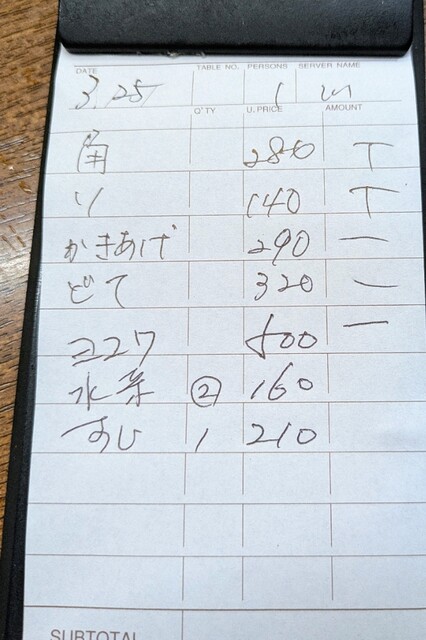 DATE TABLE NO. PERSONS SERVER NAME
3.25 1
Q'TY U.PRICE AMOUNT
角 280 T
ソ 140 T
かきあげ 290 一
どて 320 一
ユユワ 500 一
水 ② 160
すじ 1 210
SUBTOTAL